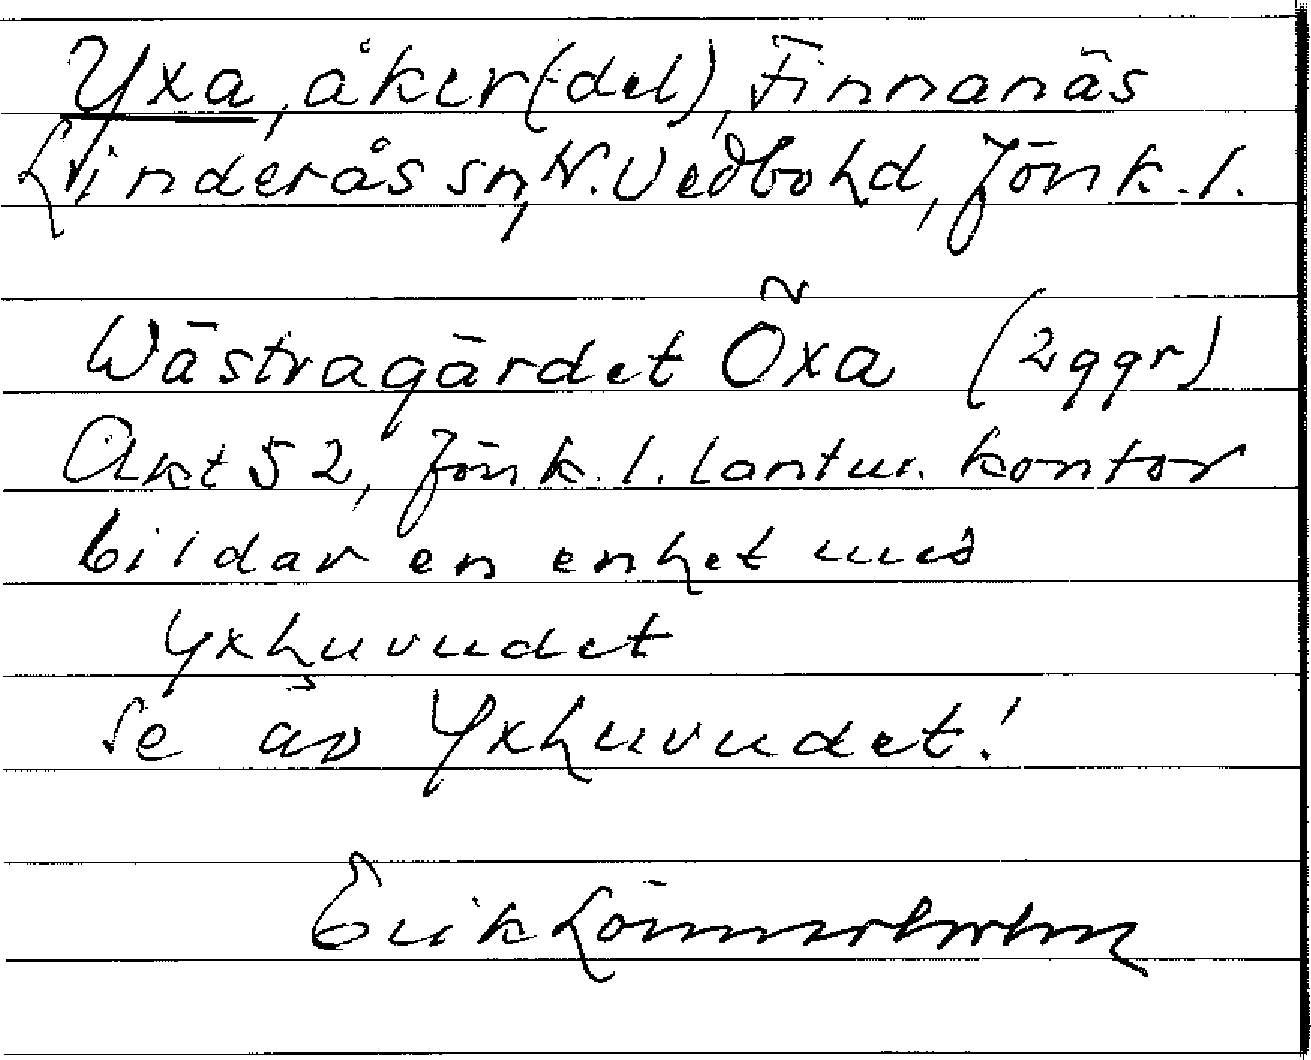 Yxa, åker(del), Finnanäs
Linderås sn, N. Vedbo hd, Jönk. l.
Wästragärdet Öxa (2 ggr)
Akt 52, Jönk. l. lantm. kontor
bildar en enhet med
Yxhuvudet
Se äv Yxhuvudet!
Erik Lönnerholm